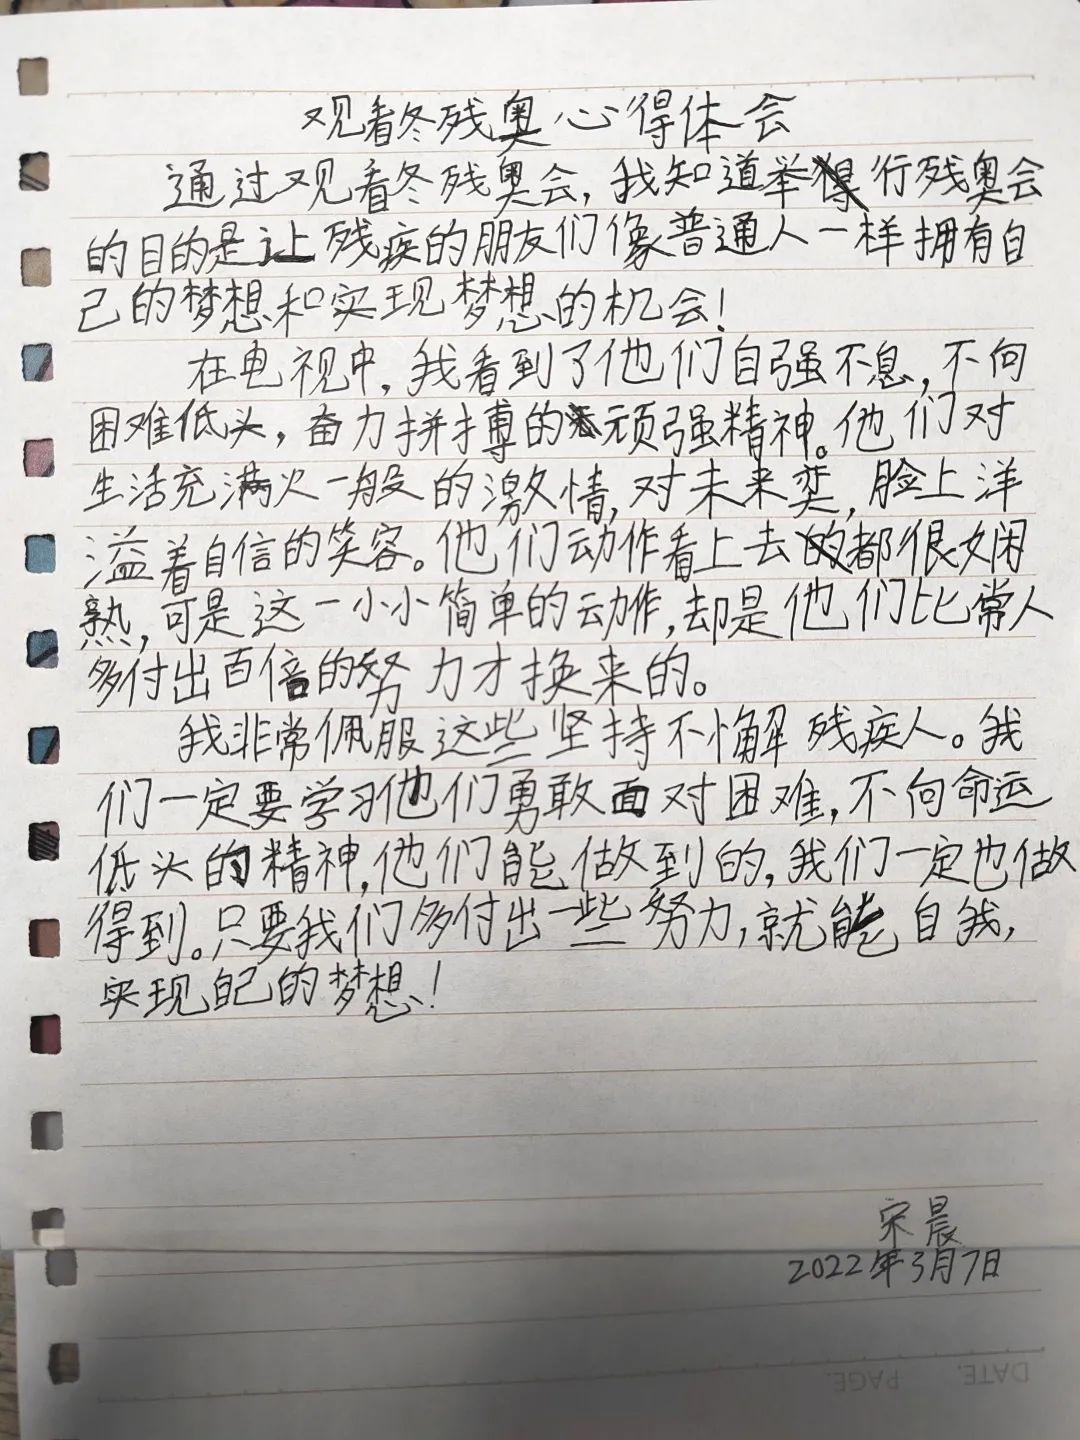 观看冬残奥心得体会
通过观看冬残奥会,我知道举行残奥会
的目的是让残疾的朋友们像普通人一样拥有自
己的梦想和实现梦想的机会!
在电视中,我看到了他们自强不息,不向
困难低头,奋力拼搏的顽强精神。他们对
生活充满火一般的激情,对未来,脸上洋
溢着自信的笑容。他们动作看上去都很娴
熟,可是这一小小简单的动作,却是他们比常人
多付出百倍的努力才换来的。
我非常佩服这些坚持不懈残疾人。我
们一定要学习他们勇敢面对困难,不向命运
低头的精神,他们能做到的,我们一定也做
得到。只要我们多付出一些努力,就能自我,
实现自己的梦想!
宋晨
2022年3月7日
DATE.
PAGE.